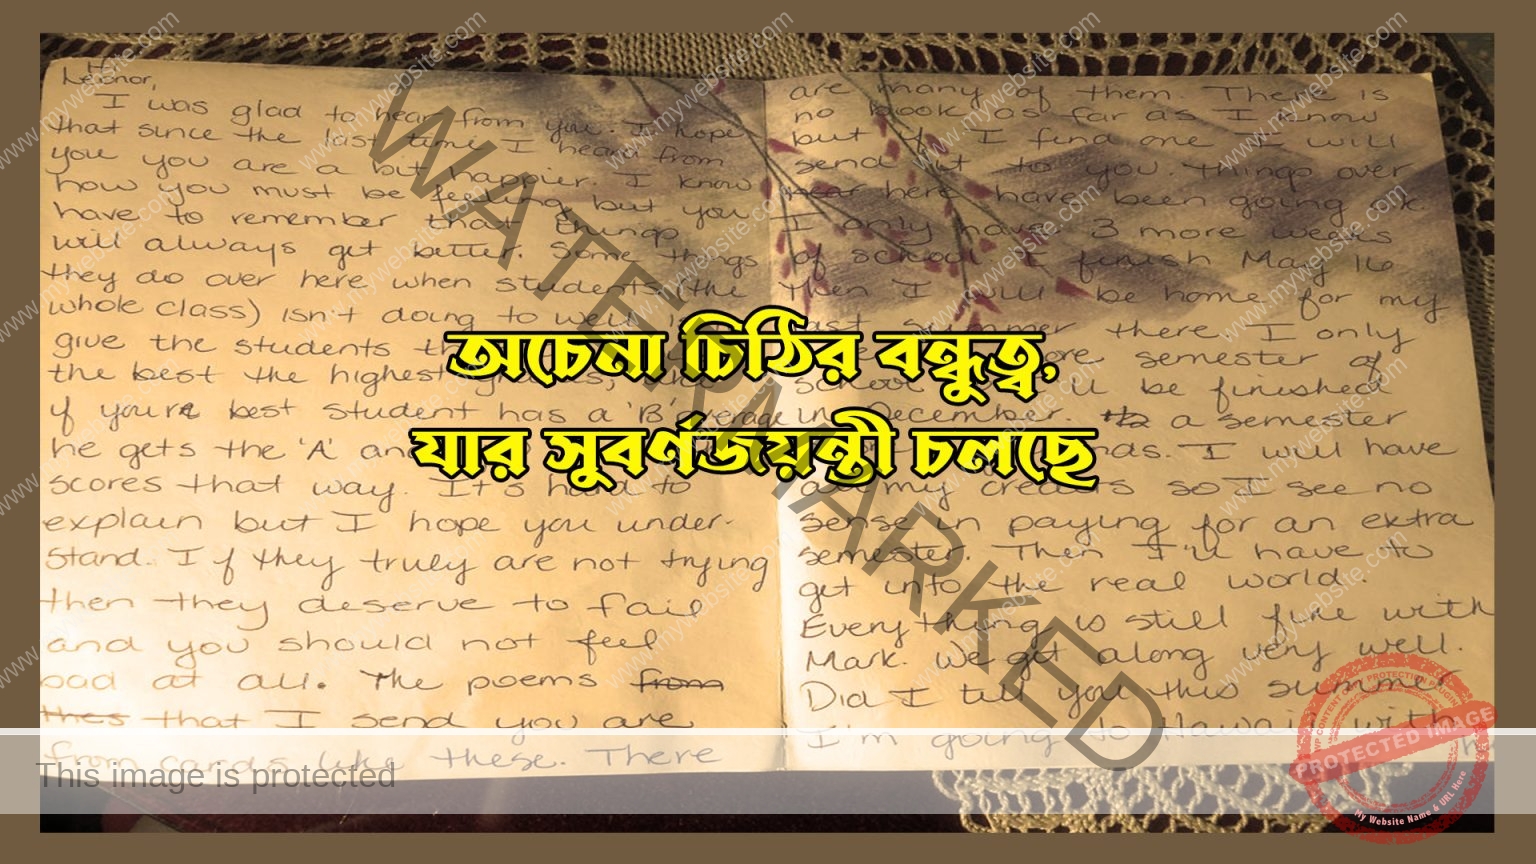 Hi
Leonor,
I was glad to hear from you. I hope
that since the last time I heard from
you you are a bit happier. I know
how you must be feeling but you
have to remember that things
will always get better. Some things
they do over here when students (the
whole class) isn't doing to well
give the students
the best the highest grades,
if you're best student has a 'B' average
he gets the 'A' and
scores that way. It's hard to
explain but I hope you under-
stand. If they truly are not trying
then they deserve to fail
and you should not feel
bad at all. The poems from
thes that I send you are
from cards like these. There
are many of them. There is
no book as far as I know
but if I find one I will
send it to you. things over
hear here have been going ok.
I only have 3 more weeks
of school I finish May 16
Then I will be home for my
last summer there I only
more semester of
school I'll be finished
in December. to a semester
I will have
all my credits so I see no
sense in paying for an extra
semester. Then I'll have to
get into the real world.
Everything is still fine with
Mark. We get along very well.
Did I tell you this summer
I'm going to Hawaii with
অচেনা চিঠির বন্ধুত্ব,
যার সুবর্ণজয়ন্তী চলছে
WATERMARKED
www.mywebsite.com
This image is protected
PROTECTED IMAGE
My Website Name & URL Here